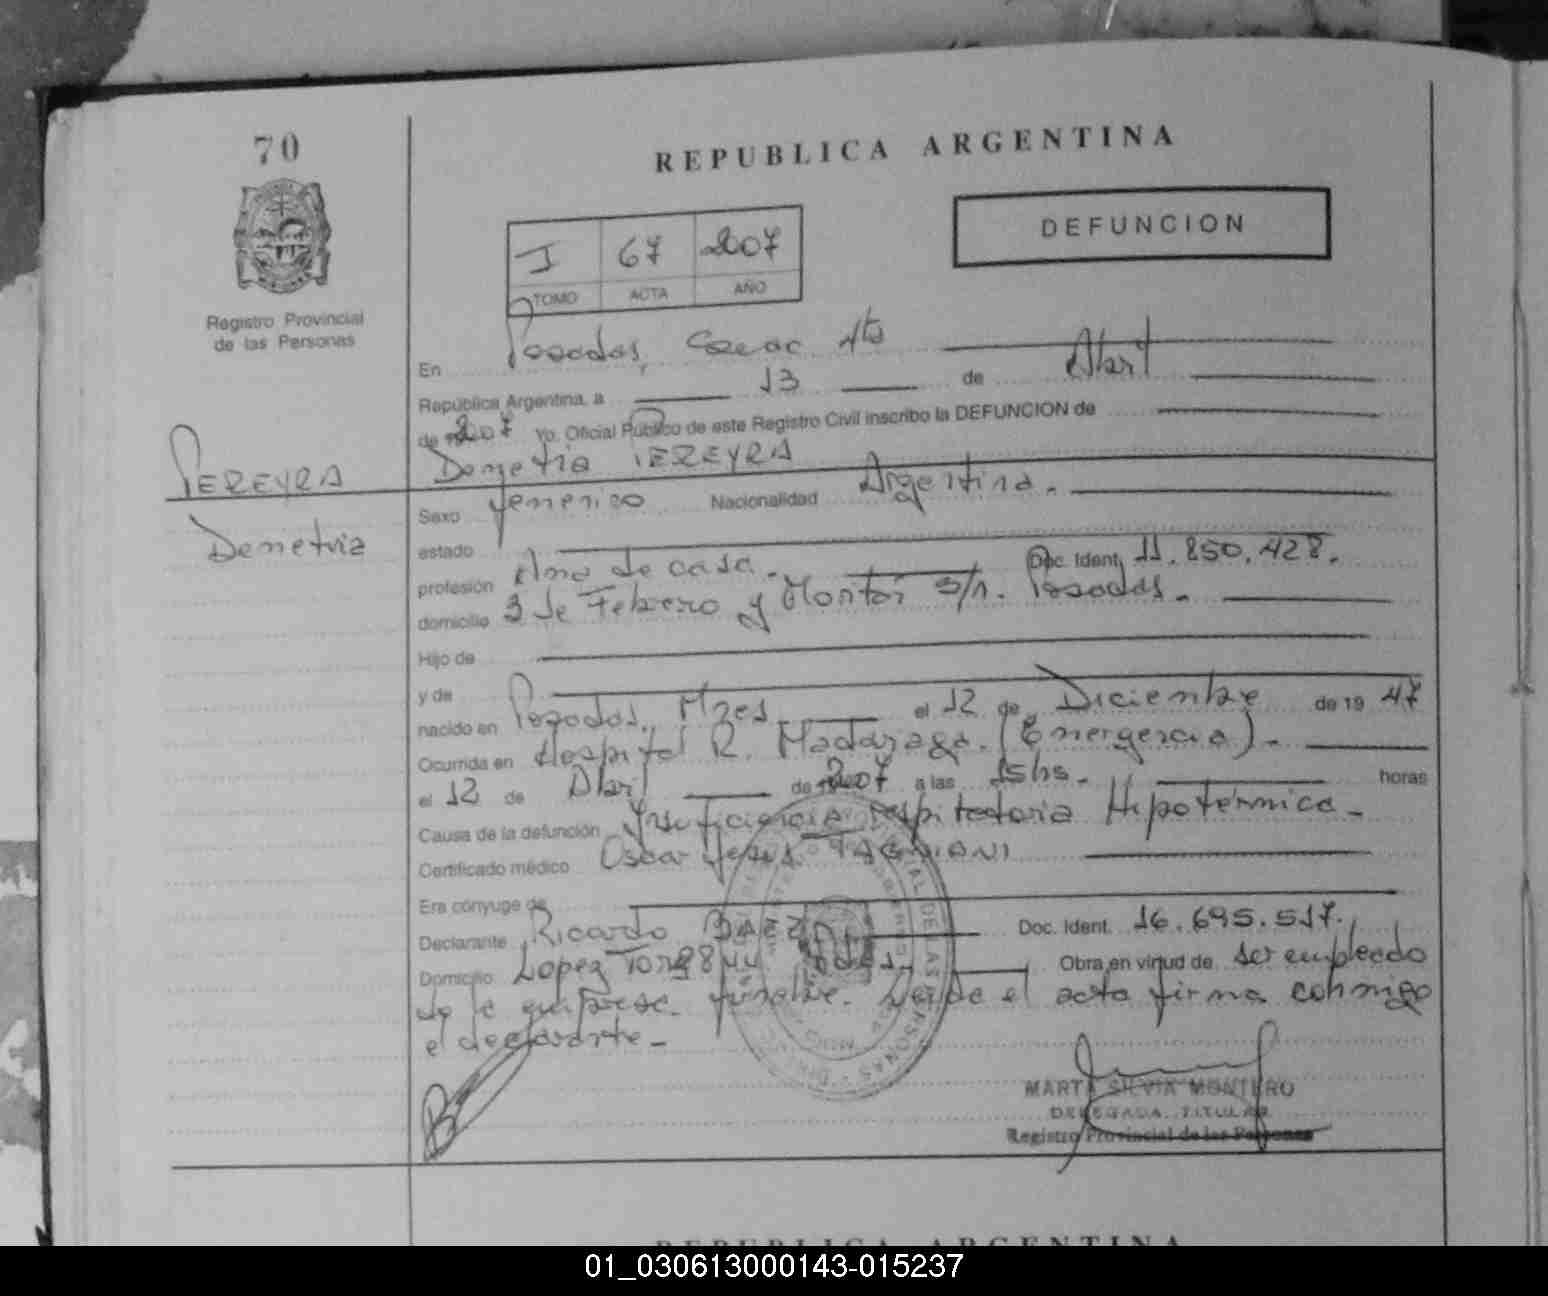 70
REPUBLICA ARGENTINA
DEFUNCION
I 67 2007
TOMO ACTA AÑO
Registro Provincial
de las Personas
En Posadas,
República Argentina, a 13 de Abril
de 2007 Yo, Oficial Público de este Registro Civil inscribo la DEFUNCION de
PEREYRA
Demetria PEREYRA
Demetria
Sexo femenino Nacionalidad Argentina.
estado
profesión Ama de casa. Doc. Ident. 11.850.428.
domicilio 3 de Febrero y Montor s/n. Posadas.
Hijo de
y de
nacido en Posadas, Mnes el 12 de Diciembre de 19 47
Ocurrida en Hospital R. Madariaga. (Emergencia).
el 12 de Abril de 2007 a las 15hs. horas
Causa de la defunción Insuficiencia respiratoria Hipotérmica
Certificado médico Oscar Jesus
Era cónyuge de
Declarante Ricardo BAEZ Doc. Ident. 16.695.517.
Domicilio Lopez Torres Obra en virtud de ser empleado
de la empresa funebre. Leída el acta firma conmigo
el declarante
MARTA SILVIA MONTERO
DELEGADA TITULAR
Registro Provincial de las Personas
REPUBLICA ARGENTINA
01_030613000143-015237